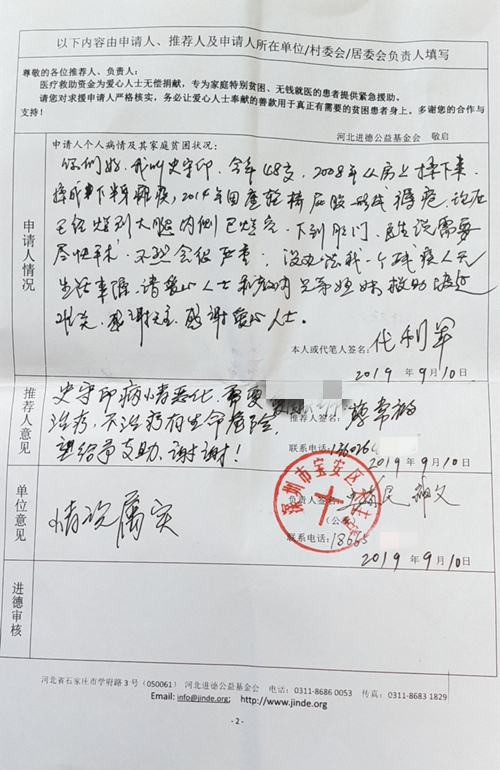 以下内容由申请人、推荐人及申请人所在单位/村委会/居委会负责人填写
尊敬的各位推荐人、负责人：
医疗救助资金为爱心人士无偿捐献，专为家庭特别贫困、无钱就医的患者提供紧急援助。
请您对求援申请人严格核实，务必让爱心人士奉献的善款用于真正有需要的贫困患者身上。多谢您的合作与
支持！
河北进德公益基金会 敬启
申请人情况
申请人个人病情及其家庭贫困状况：
你们好，我叫史守印，今年48岁，2008年从房上摔下来，
摔成下半身瘫痪，2014年因
已经烂到大腿内侧已烂空，下到肛门，医生说需要
尽快手术，不然会很严重，没办法我一个残疾人无
生活来源，请爱心人士和教内兄弟姐妹救助渡过
难关，感谢天主，感谢爱心人士。
本人或代笔人签名：代利军
2019 年 9月10日
推荐人意见
史守印病情恶化，需要
治疗，不治疗有生命危险，
望给予支助，谢谢！
推荐人签名：
联系电话：
2019 年 9月10日
单位意见
情况属实
深圳市宝安区
负责人签名：
（公
联系电话：18665
2019 年 9月10日
进德审核
河北省石家庄市学府路 3 号（050061） 河北进德公益基金会 电话：0311-8686 0053 传真：0311-8683 1829
Email: info@jinde.org; http://www.jinde.org
- 2 -